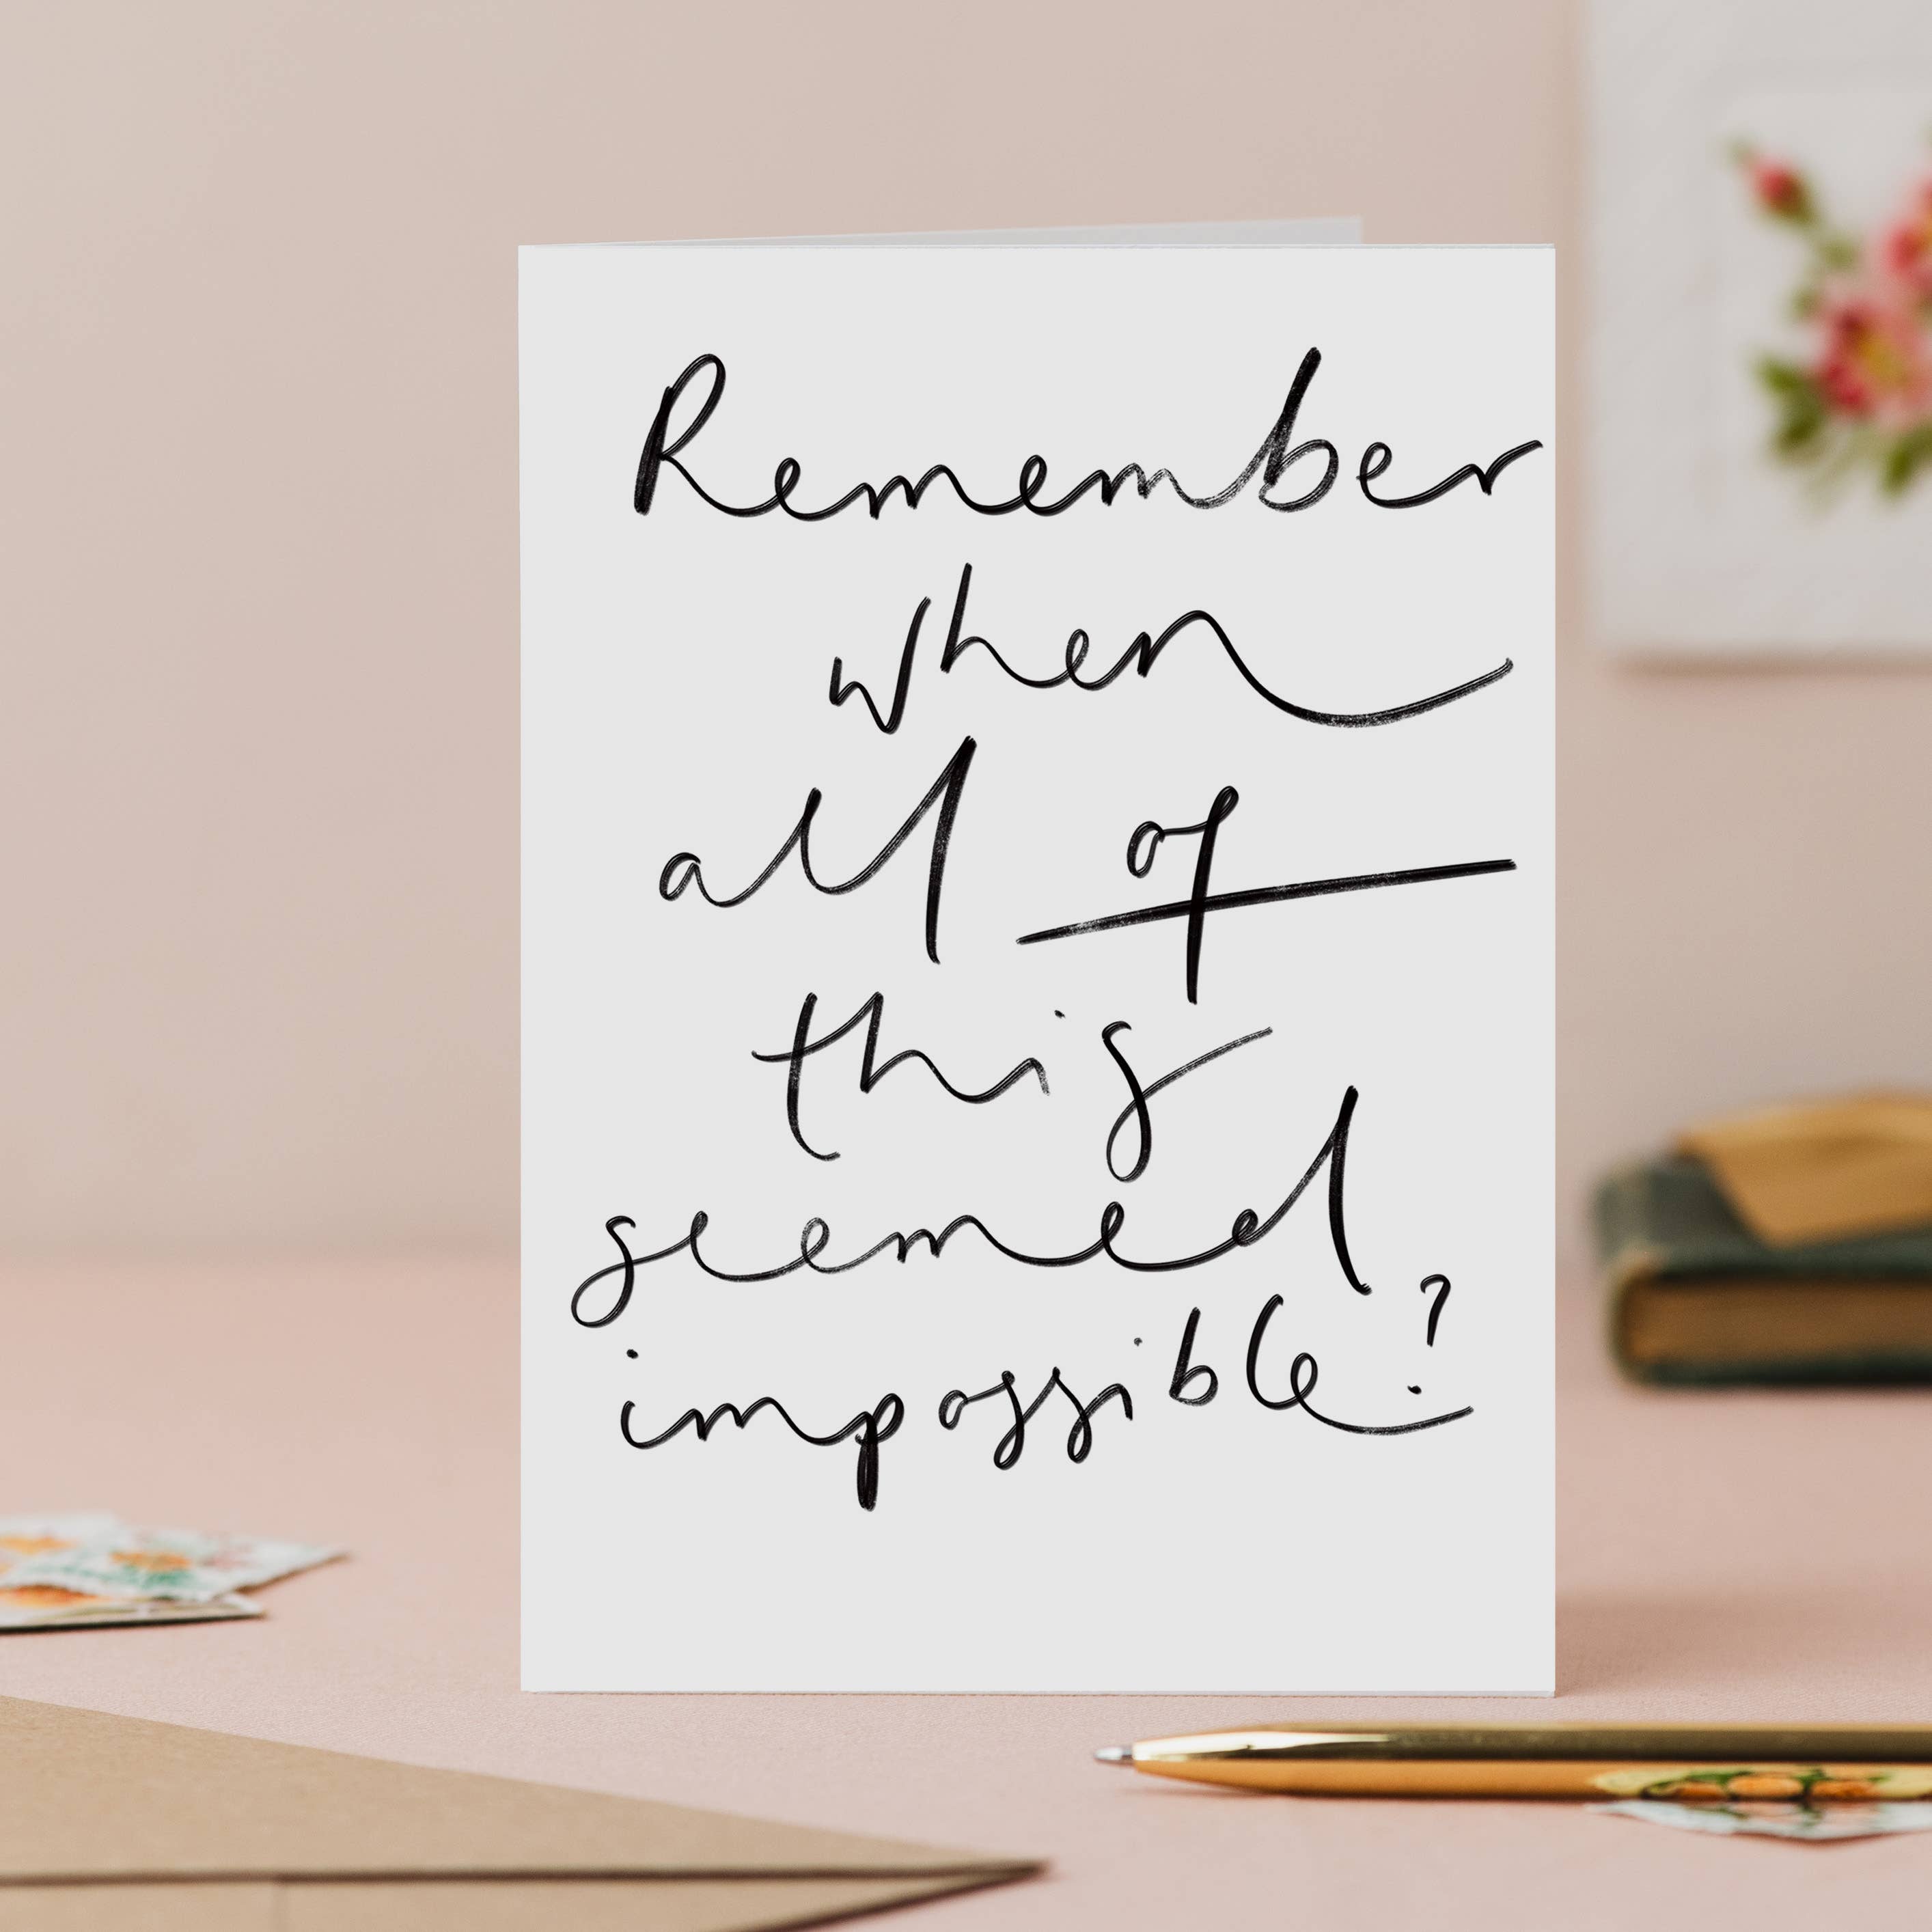 Remember
when
all of
this
seemed
impossible?